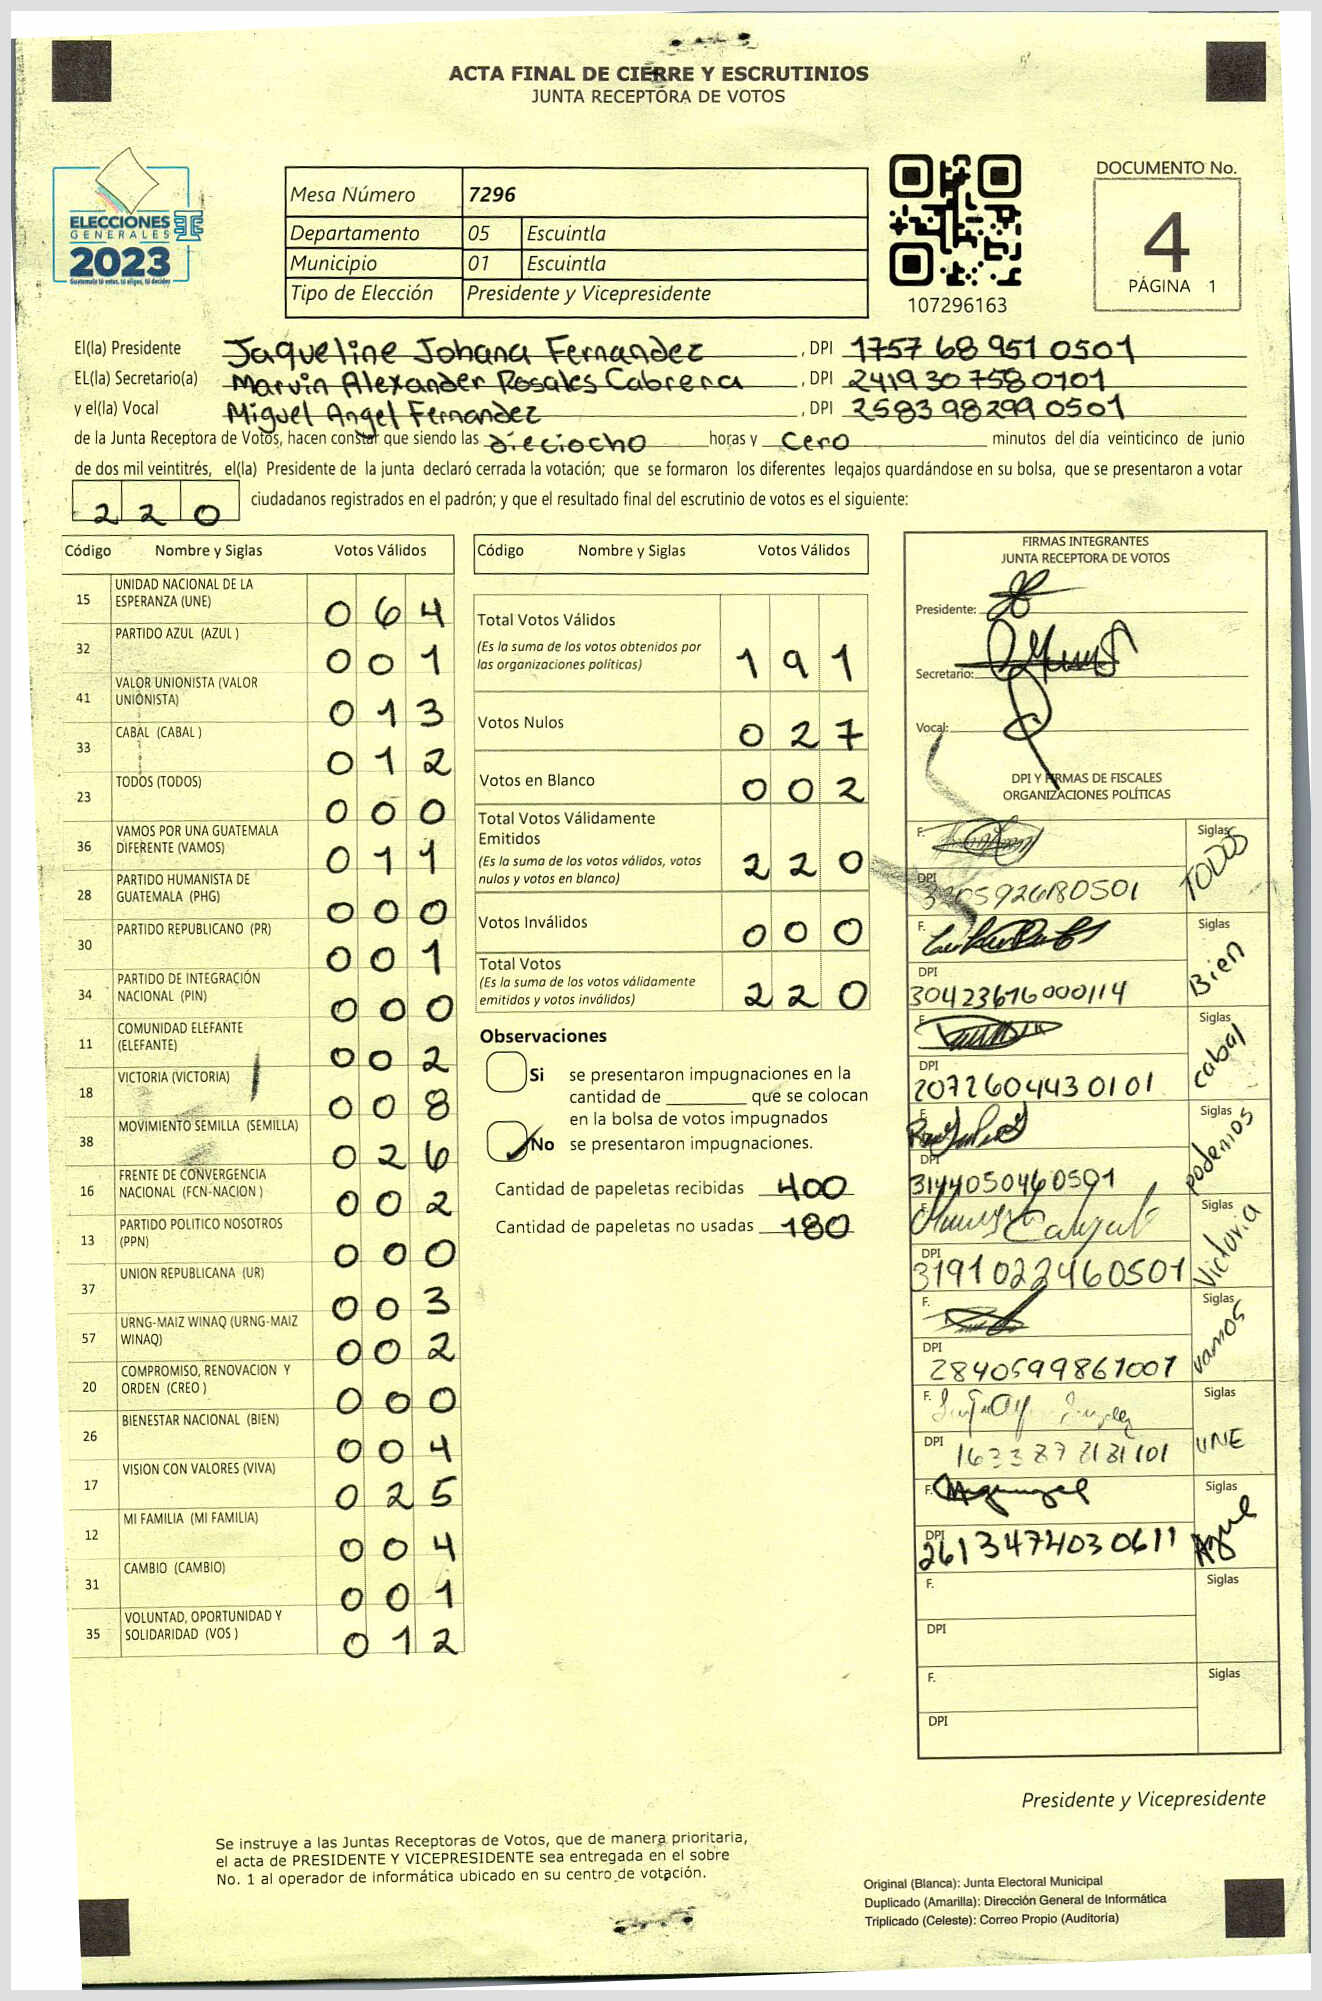 ACTA FINAL DE CIERRE Y ESCRUTINIOS
JUNTA RECEPTORA DE VOTOS
ELECCIONES
GENERALES
2023
Guatemala tú votas, tú eliges, tú decides
Mesa Número 7296
Departamento 05 Escuintla
Municipio 01 Escuintla
Tipo de Elección Presidente y Vicepresidente
107296163
DOCUMENTO No.
4
PÁGINA 1
El(la) Presidente Jaqueline Johana Fernandez, DPI 1757 68 951 0501
EL(la) Secretario(a) Marvin Alexander Rosales Cabrera, DPI 2419 30 758 0101
y el(la) Vocal Miguel Angel Fernandez, DPI 2583 98299 0501
de la Junta Receptora de Votos, hacen constar que siendo las dieciocho horas y cero minutos del día veinticinco de junio
de dos mil veintitrés, el(la) Presidente de la junta declaró cerrada la votación; que se formaron los diferentes legajos quardándose en su bolsa, que se presentaron a votar
220 ciudadanos registrados en el padrón; y que el resultado final del escrutinio de votos es el siguiente:
Código Nombre y Siglas Votos Válidos
15 UNIDAD NACIONAL DE LA ESPERANZA (UNE) 064
32 PARTIDO AZUL (AZUL ) 001
41 VALOR UNIONISTA (VALOR UNIONISTA) 013
33 CABAL (CABAL ) 012
23 TODOS (TODOS) 000
36 VAMOS POR UNA GUATEMALA DIFERENTE (VAMOS) 011
28 PARTIDO HUMANISTA DE GUATEMALA (PHG) 000
30 PARTIDO REPUBLICANO (PR) 001
34 PARTIDO DE INTEGRACIÓN NACIONAL (PIN) 000
11 COMUNIDAD ELEFANTE (ELEFANTE) 002
18 VICTORIA (VICTORIA) 008
38 MOVIMIENTO SEMILLA (SEMILLA) 026
16 FRENTE DE CONVERGENCIA NACIONAL (FCN-NACION ) 002
13 PARTIDO POLITICO NOSOTROS (PPN) 000
37 UNION REPUBLICANA (UR) 003
57 URNG-MAIZ WINAQ (URNG-MAIZ WINAQ) 002
20 COMPROMISO, RENOVACION Y ORDEN (CREO ) 000
26 BIENESTAR NACIONAL (BIEN) 004
17 VISION CON VALORES (VIVA) 025
12 MI FAMILIA (MI FAMILIA) 004
31 CAMBIO (CAMBIO) 001
35 VOLUNTAD, OPORTUNIDAD Y SOLIDARIDAD (VOS ) 012
Código Nombre y Siglas Votos Válidos
Total Votos Válidos
(Es la suma de los votos obtenidos por
las organizaciones políticas) 191
Votos Nulos 027
Votos en Blanco 002
Total Votos Válidamente
Emitidos
(Es la suma de los votos válidos, votos
nulos y votos en blanco) 220
Votos Inválidos 000
Total Votos
(Es la suma de los votos válidamente
emitidos y votos inválidos) 220
Observaciones
Si se presentaron impugnaciones en la
cantidad de ________ que se colocan
en la bolsa de votos impugnados
No se presentaron impugnaciones.
Cantidad de papeletas recibidas 400
Cantidad de papeletas no usadas 180
FIRMAS INTEGRANTES
JUNTA RECEPTORA DE VOTOS
Presidente:
Secretario:
Vocal:
DPI Y FIRMAS DE FISCALES
ORGANIZACIONES POLÍTICAS
F. Siglas TODOS
DPI
F. Siglas Bien
DPI 30423616000114
F. Siglas cabal
DPI 2072604430101
F. Siglas podemos
DPI 3144050460501
F. Siglas Victoria
DPI 3191022460501
F. Siglas vamos
DPI 2840599861001
F. Siglas UNE
DPI
F. Siglas Azul
DPI 2613474030611
F. Siglas
DPI
F. Siglas
DPI
Presidente y Vicepresidente
Se instruye a las Juntas Receptoras de Votos, que de manera prioritaria,
el acta de PRESIDENTE Y VICEPRESIDENTE sea entregada en el sobre
No. 1 al operador de informática ubicado en su centro de votación.
Original (Blanca): Junta Electoral Municipal
Duplicado (Amarilla): Dirección General de Informática
Triplicado (Celeste): Correo Propio (Auditoría)